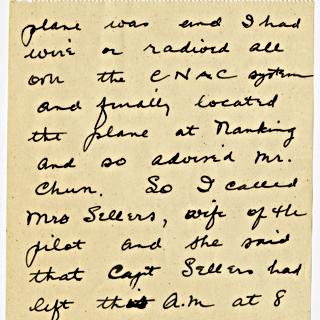 plane was and I had
wire or radioed all
over the CNAC system
and finally located
the plane at Nanking
and so advised Mr.
Chun. So I called
Mrs Sellers, wife of the
pilot and she said
that Capt Sellers had
left this A.M at 8